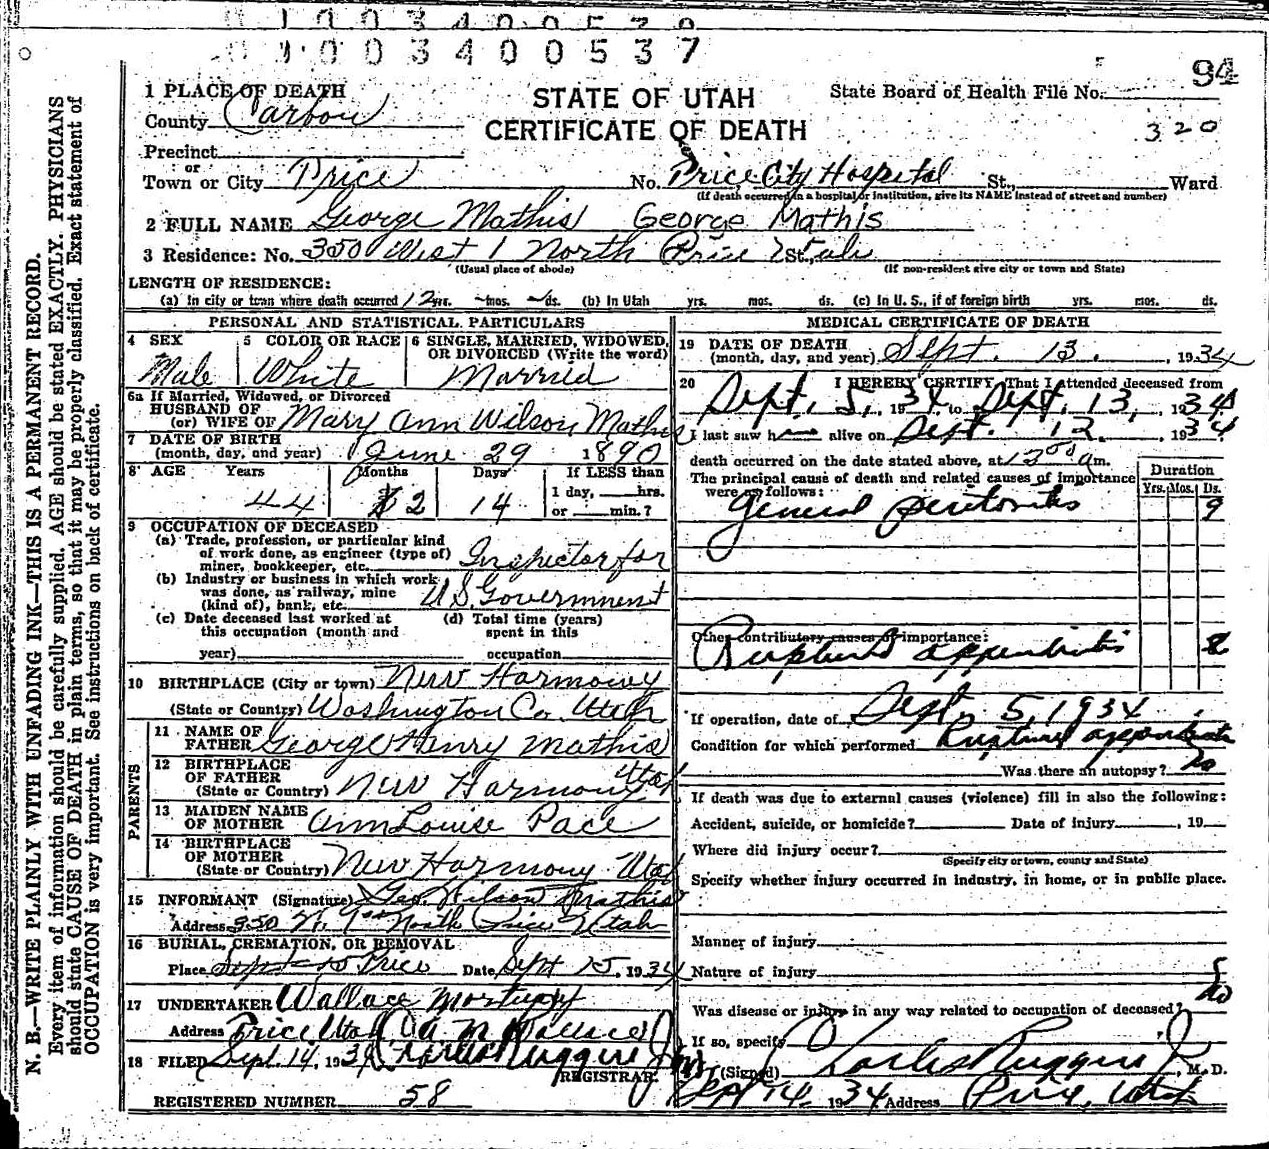 1003400537
94
1 PLACE OF DEATH
STATE OF UTAH
State Board of Health File No.
County Carbon
CERTIFICATE OF DEATH
320
Precinct
or
Town or City Price No. Price City Hospital St., Ward
(If death occurred in a hospital or institution, give its NAME instead of street and number)
2 FULL NAME George Mathis George Mathis
3 Residence: No. 350 West 1 North Price St., Utah
(Usual place of abode) (If non-resident give city or town and State)
LENGTH OF RESIDENCE:
(a) In city or town where death occurred 12 yrs. - mos. - ds. (b) In Utah yrs. mos. ds. (c) In U. S., if of foreign birth yrs. mos. ds.
PERSONAL AND STATISTICAL PARTICULARS
4 SEX 5 COLOR OR RACE 6 SINGLE, MARRIED, WIDOWED, OR DIVORCED (Write the word)
Male White Married
6a If Married, Widowed, or Divorced
HUSBAND OF
(or) WIFE OF Mary Ann Wilson Mathis
7 DATE OF BIRTH
(month, day, and year) June 29 1890
8 AGE Years Months Days If LESS than
44 2 14 1 day, hrs.
or min.?
9 OCCUPATION OF DECEASED
(a) Trade, profession, or particular kind
of work done, as engineer (type of)
miner, bookkeeper, etc. Inspector for
(b) Industry or business in which work
was done, as railway, mine
(kind of), bank, etc. U.S. Government
(c) Date deceased last worked at (d) Total time (years)
this occupation (month and spent in this
year) occupation
10 BIRTHPLACE (City or town) New Harmony
(State or Country) Washington Co. Utah
PARENTS
11 NAME OF
FATHER George Henry Mathis
12 BIRTHPLACE
OF FATHER
(State or Country) New Harmony Utah
13 MAIDEN NAME
OF MOTHER Ann Louise Pace
14 BIRTHPLACE
OF MOTHER
(State or Country) New Harmony Utah
15 INFORMANT (Signature) Geo. Wilson Mathis
Address 350 W. 1st North Price Utah
16 BURIAL, CREMATION, OR REMOVAL
Place Price Date Sept 15, 1934
17 UNDERTAKER Wallace Mortuary
Address Price Utah A M Wallace
18 FILED Sept. 14, 1934 Charles Ruggeri Jr
REGISTRAR.
REGISTERED NUMBER 58
MEDICAL CERTIFICATE OF DEATH
19 DATE OF DEATH
(month, day, and year) Sept. 13, 1934
20 I HEREBY CERTIFY, That I attended deceased from
Sept. 5, 1934 to Sept. 13, 1934
I last saw h alive on Sept. 12, 1934
death occurred on the date stated above, at am.
The principal cause of death and related causes of importance
were as follows:
Duration
Yrs. Mos. Ds.
General peritonitis 9
Other contributory causes of importance:
Ruptured appendicitis
If operation, date of Sept. 5, 1934
Condition for which performed Rupture appendicitis
Was there an autopsy? No
If death was due to external causes (violence) fill in also the following:
Accident, suicide, or homicide? Date of injury , 19
Where did injury occur?
(Specify city or town, county and State)
Specify whether injury occurred in industry, in home, or in public place.
Manner of injury
Nature of injury
Was disease or injury in any way related to occupation of deceased? No
If so, specify
(Signed) Charles Ruggeri Jr, M. D.
Sept 14, 1934 Address Price, Utah
N. B.—WRITE PLAINLY WITH UNFADING INK—THIS IS A PERMANENT RECORD.
Every item of information should be carefully supplied. AGE should be stated EXACTLY. PHYSICIANS
should state CAUSE OF DEATH in plain terms, so that it may be properly classified. Exact statement of
OCCUPATION is very important. See instructions on back of certificate.